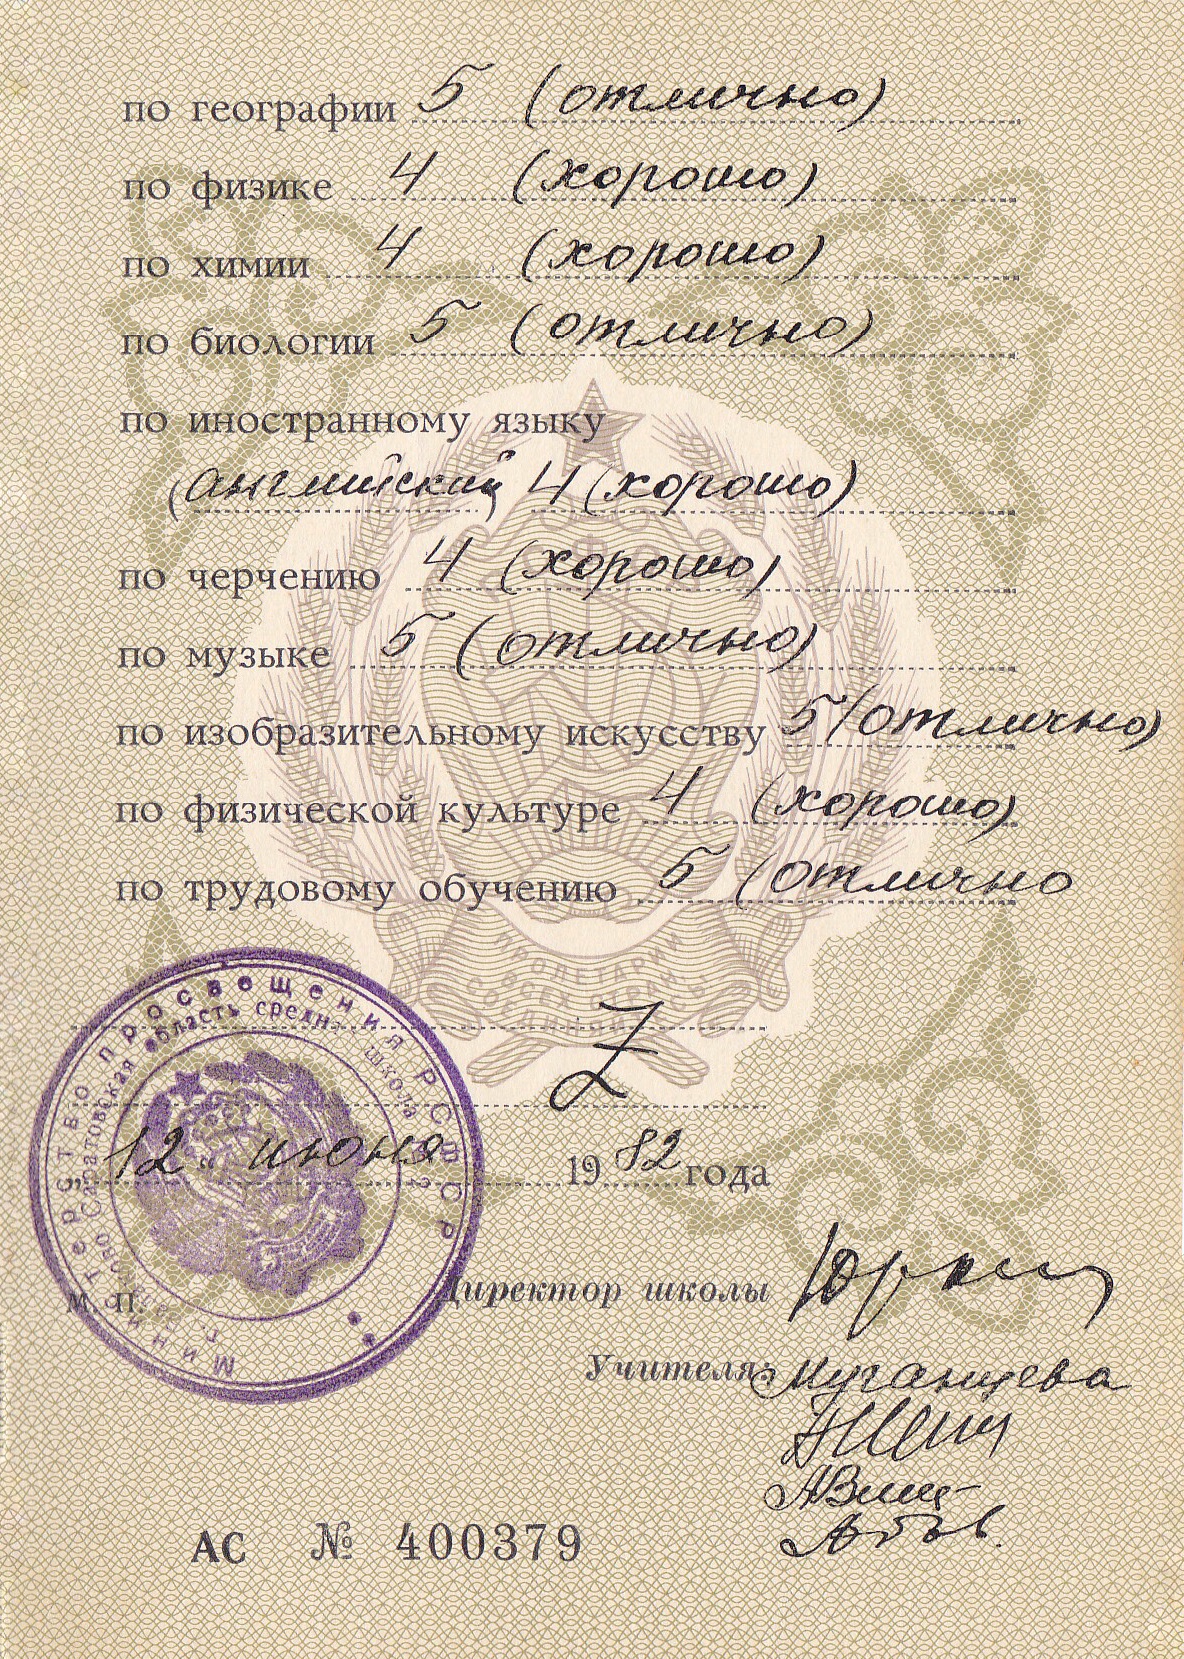 по географии 5 (отлично)
по физике 4 (хорошо)
по химии 4 (хорошо)
по биологии 5 (отлично)
по иностранному языку
(английский) 4 (хорошо)
по черчению 4 (хорошо)
по музыке 5 (отлично)
по изобразительному искусству 5 (отлично)
по физической культуре 4 (хорошо)
по трудовому обучению 5 (отлично
Z
Министерство просвещения РСФСР
Саратовская область средняя школа
г.
„12 июня 1982 года
М. П.
Директор школы
Учителя: Муганцева
АС № 400379